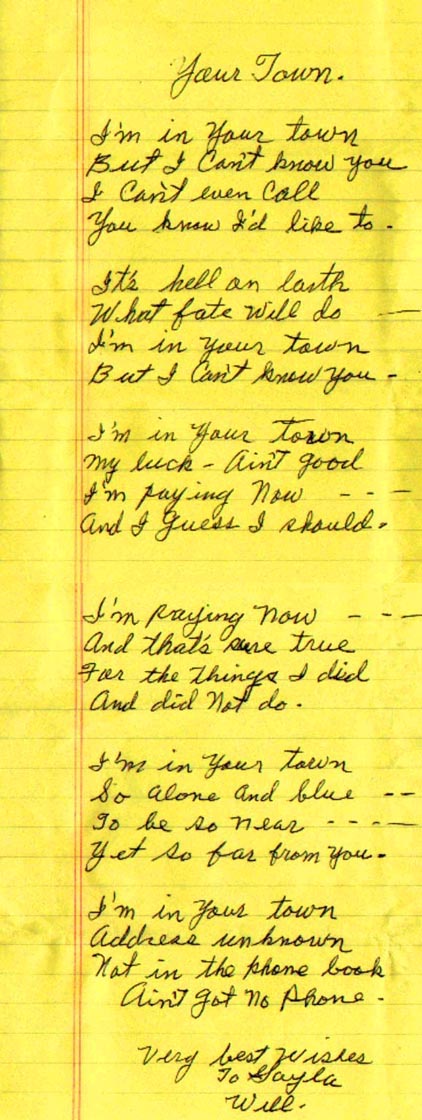 Your Town.
I'm in Your town
But I Can't know you
I Can't even Call
You know I'd like to -
It's hell on earth
What fate will do —
I'm in your town
But I Can't know you -
I'm in Your town
My luck - Ain't good
I'm paying Now - - -
And I Guess I should.
I'm paying now - - -
And that's sure true
For the things I did
And did Not do.
I'm in Your town
So alone and blue - -
To be so near - - - -
Yet so far from you -
I'm in Your town
Address unknown
Not in the phone book
Ain't Got No Phone -
Very best Wishes
To Gayla
Will.